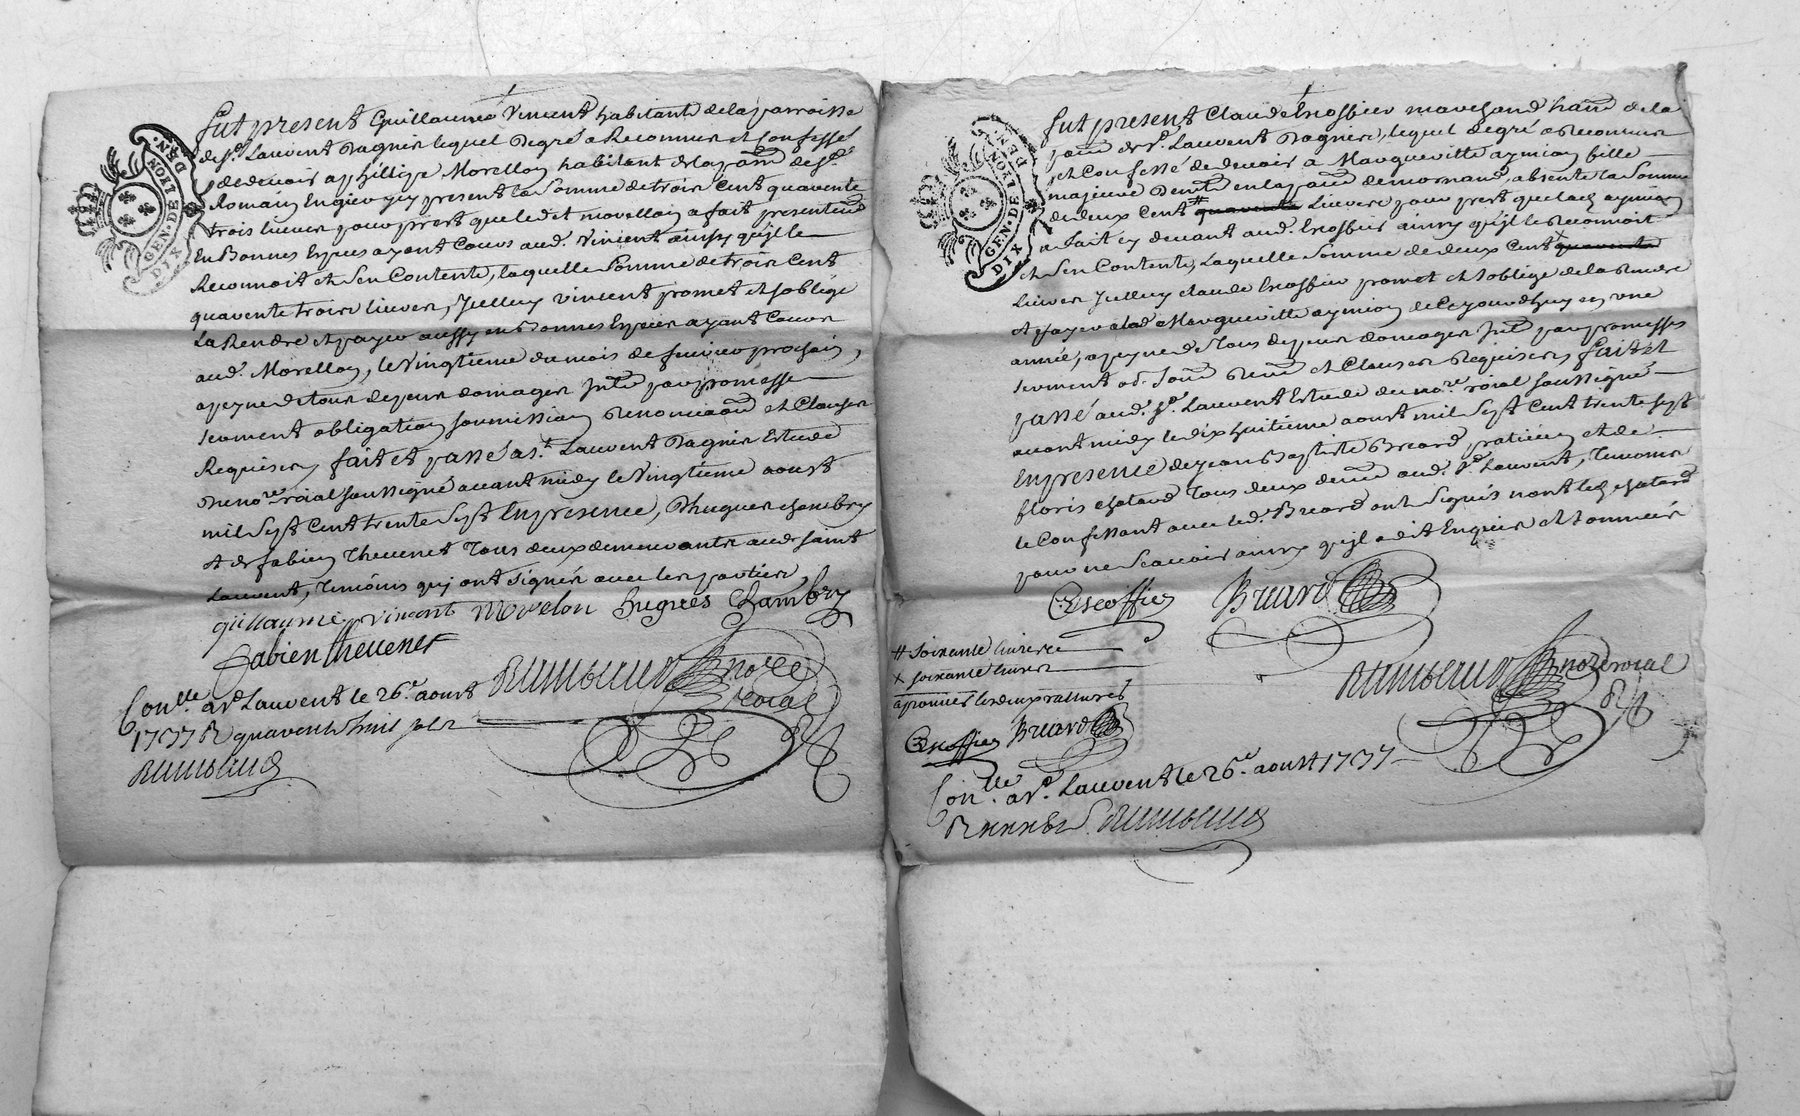 GEN. DE LYON
DIX DEN.
fut present Guillaume Vincent habitante de la parroisse
de st. Laurent Dagnis lequel degré a Reconneu et Confessé
de devoir a phillipe Morellon habitant de la parr de st.
Romain En gier icy present la Somme de trois Cent quarente
trois livres pour prest que ledit morellon a fait presentemt
En Bonnes Especes ayant Cours aud. Vincent ainsy qu'jl le
Reconnoit et s'en Contente, laquelle Somme de trois Cent
quarente trois livres, Jcelluy vincent promet et s'oblige
La Rendre et payer aussy en Bonnes Especes ayant Cours
aud. Morellon, le Vingtieme du mois de fevrier prochain,
a peyne de tous depens domages Jnts par promesse
serment obligation soumission Renonciaon et Clauses
Requises, fait et passé a st. Laurent Dagnis Estude
du nore. roial soussigné avant midy le Vingtiéme aoust
mil Sept Cent trente Sept En presence, D'hugues chambry
et de fabien Thevenet Tous deux demeurants aud. saint
Laurent, Temoins quj ont signés avec les parties,
guillaume vincent Morelon hugues Chambry
fabien thevenet
nore
roial
Conlle a st Laurent le 26e. aoust
1737 R quarente huit sols
GEN. DE LYON
DIX DEN.
fut present Claude Escoffier marchand hant de la
parr de st. Laurent Dagnis, lequel degré a Reconneu
et Confessé de devoir a Margueritte aymion fille
majeure demte en la parr de mornand, absente la Somme
de deux Cent # quarente Livres pour prest que lad. aymion
a fait cy devant aud. Escoffier ainsy qu'jl le Reconnoit
et s'en Contente, Laquelle Somme de deux Cent x quarente
Livres Jcelluy claude Escoffier promet et s'oblige de la Rendre
et payer a lad. Margueritte aymion de Ce jourdhuy en une
année, a peyne de Tous depens domages Jnts par promesses
serment ob. soum Renon et Clauses Requises, fait et
passé aud. st. Laurent Estude du nore. roial soussigné
avant midy le dix huitieme aoust mil Sept Cent trente Sept
En presence de jean Baptiste Breard praticien et de
floris chatard Tous deux demts aud. st. Laurent, Temoins
le Confessant avec led. Breard ont signés non led. chatard
pour ne Scavoir ainsy qu'jl a dit Enquis et sommés
Escoffier Breard
# soixante livres
x soixante livres
aprouvés les deux rattures
Escoffier Breard
nore roial
Conlle. a st. Laurent le 26e. aoust 1737